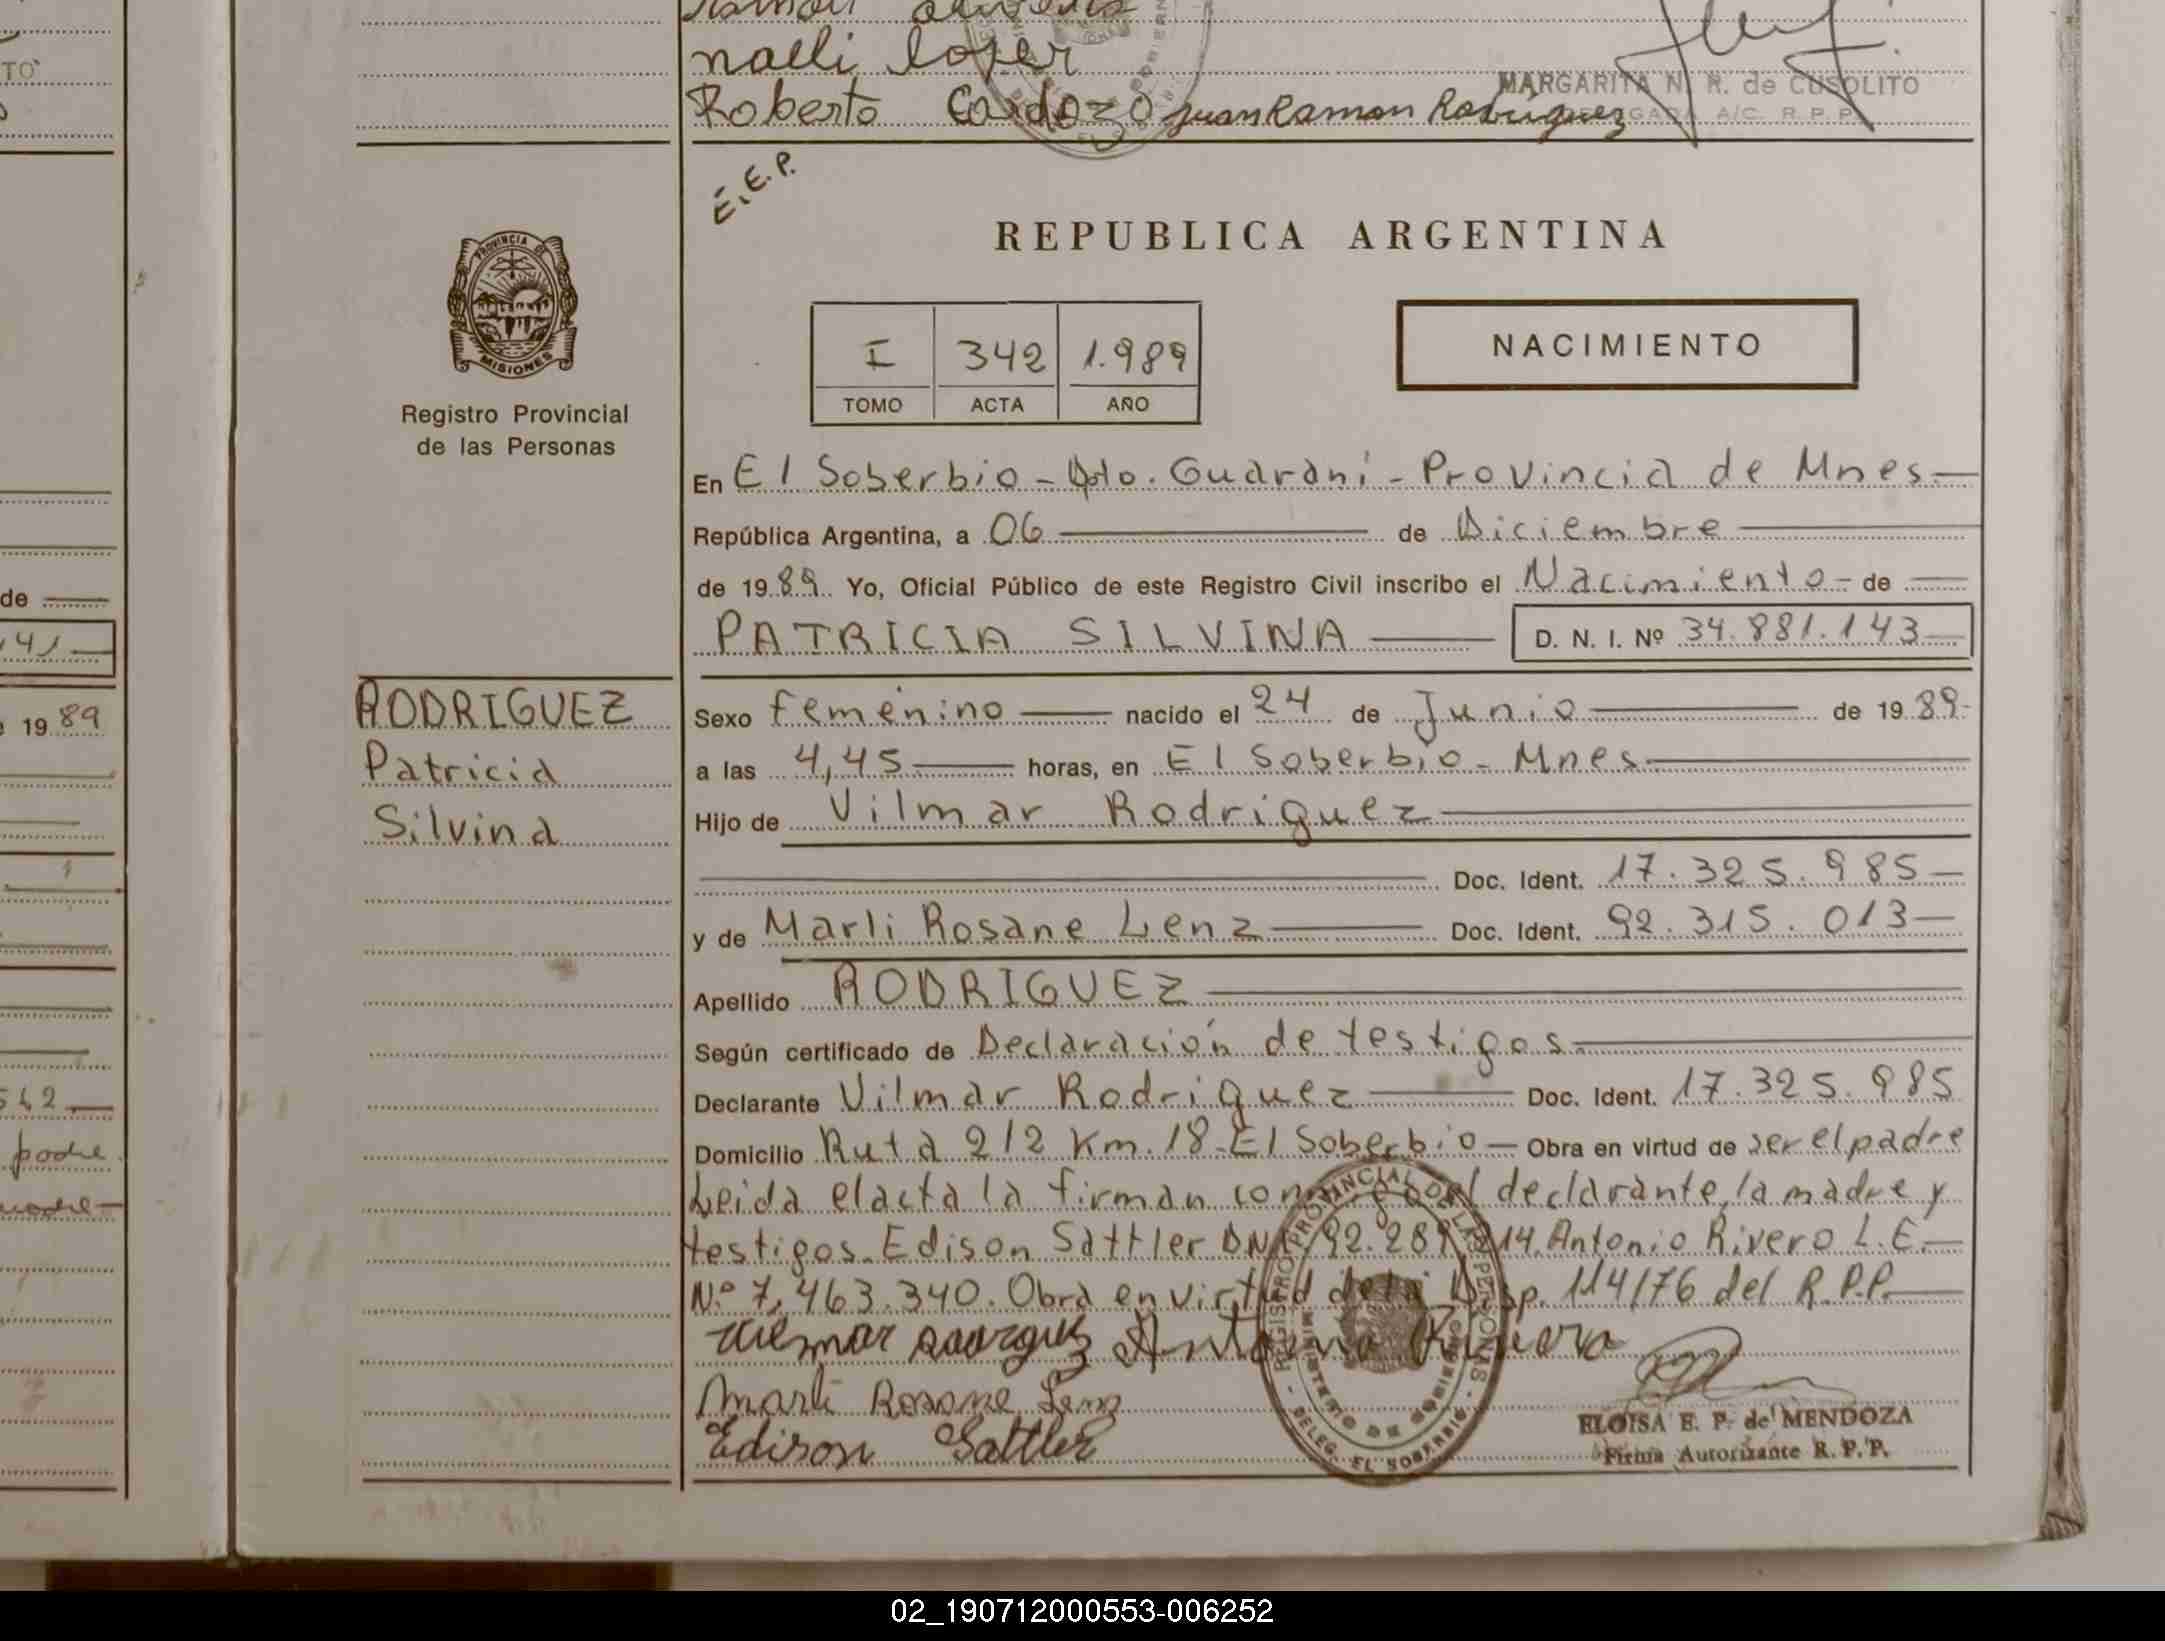 nalli lopez
Roberto Cardozo Juan Ramon Rodriguez
MARGARITA N. R. de CUSOLITO
DELEGADA A/C. R. P. P.
E.E.P.
REPUBLICA ARGENTINA
PROVINCIA DE MISIONES
Registro Provincial
de las Personas
I 342 1.989
TOMO ACTA AÑO
NACIMIENTO
En El Soberbio - Dto. Guaraní - Provincia de Mnes.
República Argentina, a 06 de Diciembre
de 1989. Yo, Oficial Público de este Registro Civil inscribo el Nacimiento - de
PATRICIA SILVINA D. N. I. Nº 34.881.143
RODRIGUEZ
Patricia
Silvina
Sexo femenino nacido el 24 de Junio de 1989
a las 4,45 horas, en El Soberbio - Mnes
Hijo de Vilmar Rodriguez
Doc. Ident. 17.325.985
y de Marli Rosane Lenz Doc. Ident. 92.315.013
Apellido RODRIGUEZ
Según certificado de Declaración de testigos.
Declarante Vilmar Rodriguez Doc. Ident. 17.325.985
Domicilio Ruta 212 Km. 18 - El Soberbio - Obra en virtud de ser el padre
Leida el acta la firman conmigo el declarante, la madre y
testigos. Edison Sattler DNI 92.289.214. Antonio Rivero L.E.
Nº 7.463.340. Obra en virtud de la Disp. 114/76 del R.P.P.
Antonio Rivero
Marli Rosane Lenz
Edison Sattler
REGISTRO PROVINCIAL DE LAS PERSONAS
MINISTERIO DE GOBIERNO
DELEG. EL SOBERBIO
ELOISA E. P. de MENDOZA
Firma Autorizante R. P. P.
de
41
de 1989
542
padre
madre
02_190712000553-006252